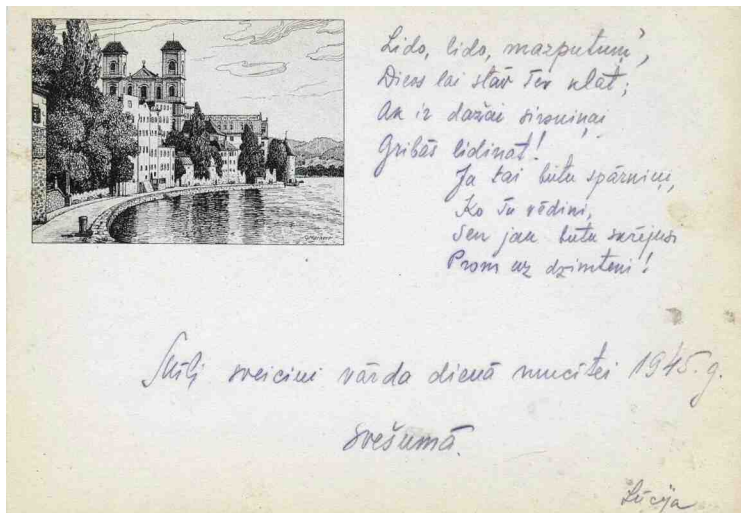 Lido, lido, mazputniņ',
Dievs lai stāv Tev klāt;
Ak ir dažai sirsniņai
Gribās lidināt!
Ja tai būtu spārniņi,
Ko Tu vēdini,
Sen jau būtu skrējusi
Prom uz dzimteni!
Mīļi sveicini vārda dienā mucītei 1945. g.
svešumā.
Lūcija